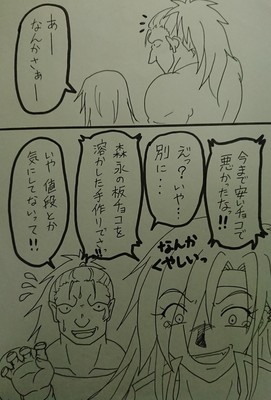 あー
なんかさぁー
今まで安いチョコで
悪かったなっ!!
えっ?いや…
別に…
森永の板チョコを
溶かした手作りでさ
いや値段とか
気にしてないって!!
なんか
くやしいっ